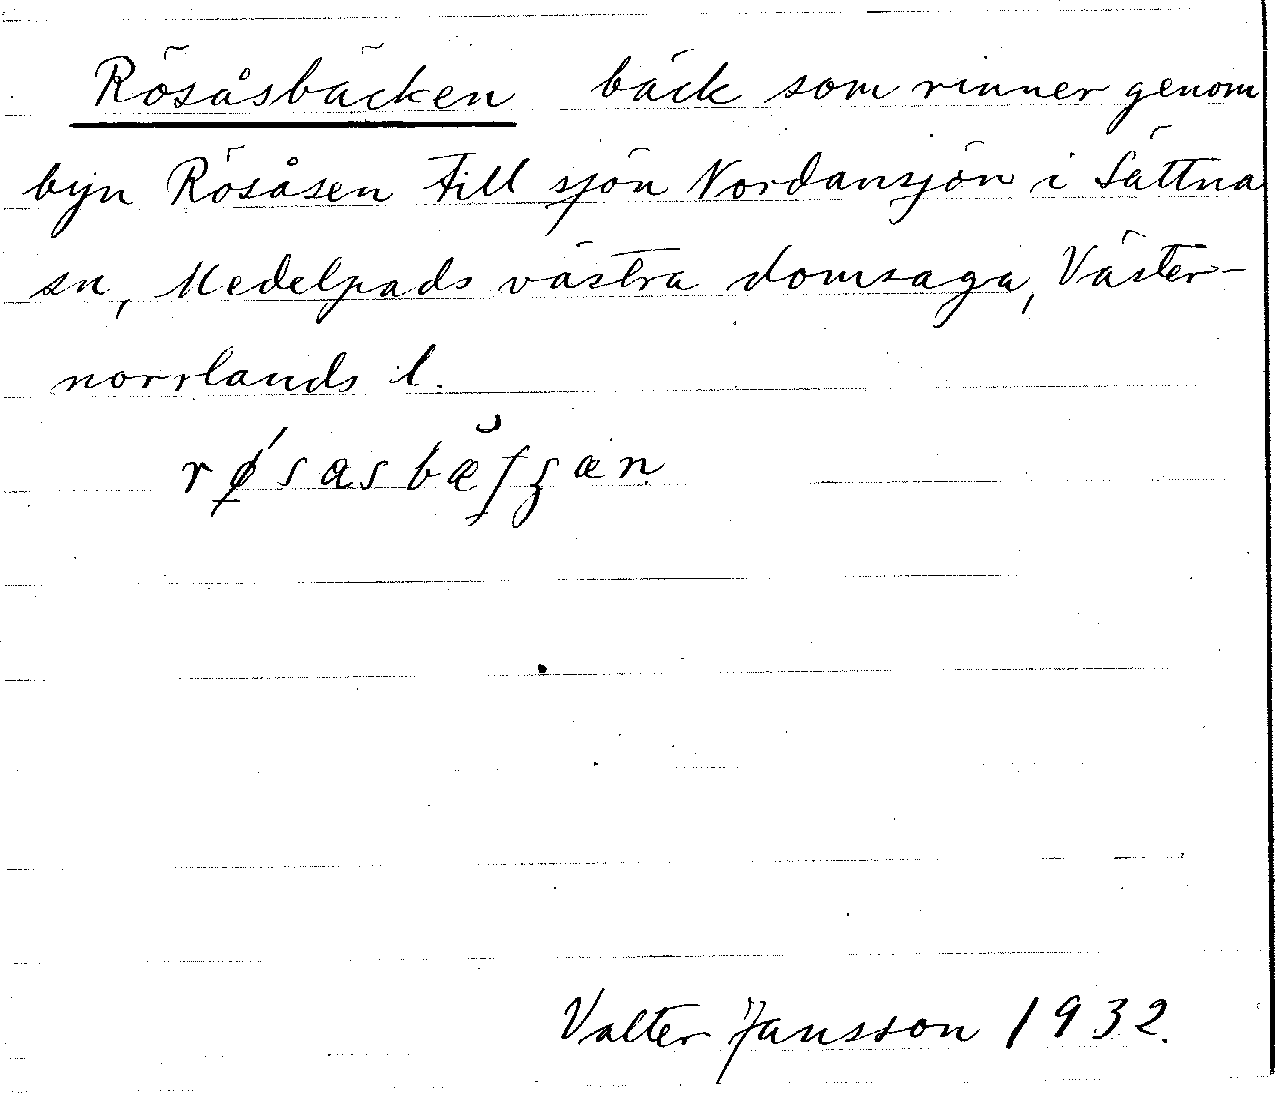 Rösåsbäcken bäck som rinner genom
byn Rösåsen till sjön Nordansjön i Sättna
sn, Medelpads västra domsaga, Väster-
norrlands l.
Valter Jansson 1932.